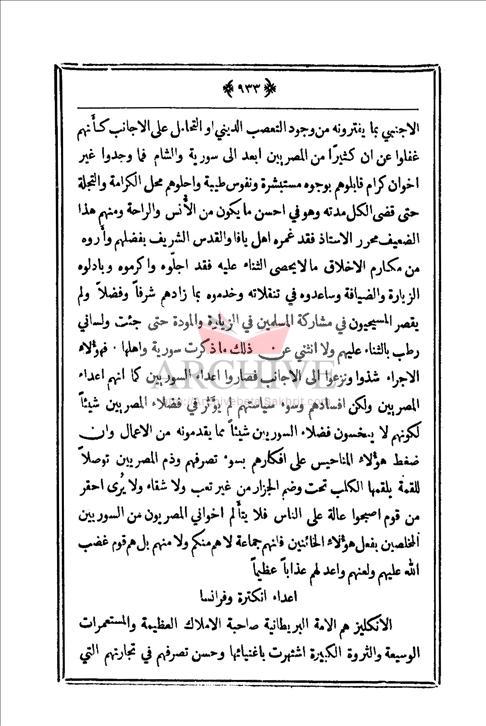 ﴿ ٩٣٣ ﴾
الاجنبي بما يفترونه من وجود التعصب الديني او التحامل على الاجانب كأنهم
غفلوا عن ان كثيرًا من المصريين ابعد الى سورية والشام فما وجدوا غير
اخوان كرام قابلوهم بوجوه مستبشرة ونفوس طيبة واحلوهم محل الكرامة والتجلة
حتى قضى الكل مدته وهو في احسن ما يكون من الأنس والراحة ومنهم هذا
الضعيف محرر الاستاذ فقد غمره اهل يافا والقدس الشريف بفضلهم وأروه
من مكارم الاخلاق ما لا يحصى الثناء عليه فقد اجلّوه واكرموه وبادلوه
الزيارة والضيافة وساعدوه في تنقلاته وخدموه بما زادهم شرفًا وفضلاً ولم
يقصر المسيحيون في مشاركة المسلمين في الزيارة والمودة حتى جئت ولساني
رطب بالثناء عليهم ولا انثني عن ذلك ما ذكرت سورية واهلها · فهؤلاء
الاجراء شذوا ونزعوا الى الاجانب فصاروا اعداء السوريين كما انهم اعداء
المصريين ولكن افسادهم وسوء سياستهم لم يؤثر في فضلاء المصريين شيئًا
لكونهم لا يبخسون فضلاء السوريين شيئًا مما يقدمونه من الاعمال وان
ضغط هؤلاء المناحيس على افكارهم بسوء تصرفهم وذم المصريين توصلاً
للقمة يلقمها الكلب تحت وضم الجزار من غير تعب ولا شقاء ولا يُرى احقر
من قوم اصبحوا عالة على الناس فلا يتألم اخواني المصريون من السوريين
المخلصين بفعل هؤلاء الخائنين فانهم جماعة لا هم منكم ولا منهم بل هم قوم غضب
الله عليهم ولعنهم واعد لهم عذاباً عظيماً
اعداء انكلترة وفرانسا
الانكليز هم الامة البريطانية صاحبة الاملاك العظيمة والمستعمرات
الوسيعة والثروة الكبيرة اشتهرت باغنيائها وحسن تصرفهم في تجارتهم التي
ARCHIVE